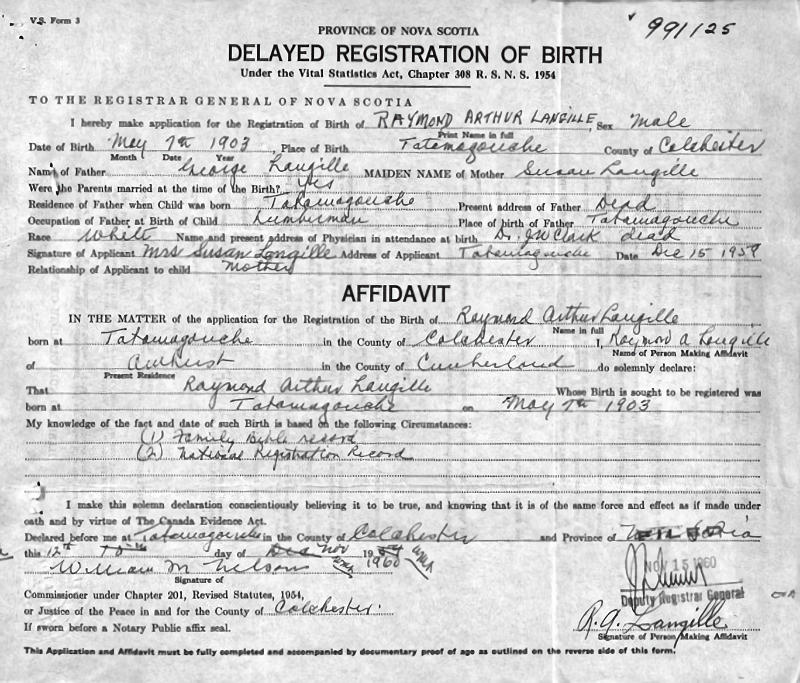 V.S. Form 3
991125
PROVINCE OF NOVA SCOTIA
DELAYED REGISTRATION OF BIRTH
Under the Vital Statistics Act, Chapter 308 R. S. N. S. 1954
TO THE REGISTRAR GENERAL OF NOVA SCOTIA
I hereby make application for the Registration of Birth of RAYMOND ARTHUR LANGILLE, Sex Male
Print Name in full
Date of Birth May 7th 1903 Place of Birth Tatamagouche County of Colchester
Month Date Year
Name of Father George Langille MAIDEN NAME of Mother Susan Langille
Were the Parents married at the time of the Birth? Yes
Residence of Father when Child was born Tatamagouche Present address of Father Dead
Occupation of Father at Birth of Child Lumberman Place of birth of Father Tatamagouche
Race White Name and present address of Physician in attendance at birth Dr. J W Clark dead
Signature of Applicant Mrs Susan Langille Address of Applicant Tatamagouche Date Dec 15 1959
Relationship of Applicant to child Mother
AFFIDAVIT
IN THE MATTER of the application for the Registration of the Birth of Raymond Arthur Langille
Name in full
born at Tatamagouche in the County of Colchester I, Raymond A Langille
Name of Person Making Affidavit
of Amherst in the County of Cumberland do solemnly declare:
Present Residence
That Raymond Arthur Langille Whose Birth is sought to be registered was
born at Tatamagouche on May 7th 1903
My knowledge of the fact and date of such Birth is based on the following Circumstances:
(1) Family Bible record
(2) National Registration Record
I make this solemn declaration conscientiously believing it to be true, and knowing that it is of the same force and effect as if made under
oath and by virtue of The Canada Evidence Act.
Declared before me at Tatamagouche in the County of Colchester and Province of Nova Scotia
this 12th day of Dec Nov 19 1960
William M Nelson
Signature of
NOV 15 1960
Deputy Registrar General
Commissioner under Chapter 201, Revised Statutes, 1954,
or Justice of the Peace in and for the County of Colchester.
R. A. Langille
If sworn before a Notary Public affix seal.
Signature of Person Making Affidavit
This Application and Affidavit must be fully completed and accompanied by documentary proof of age as outlined on the reverse side of this form.